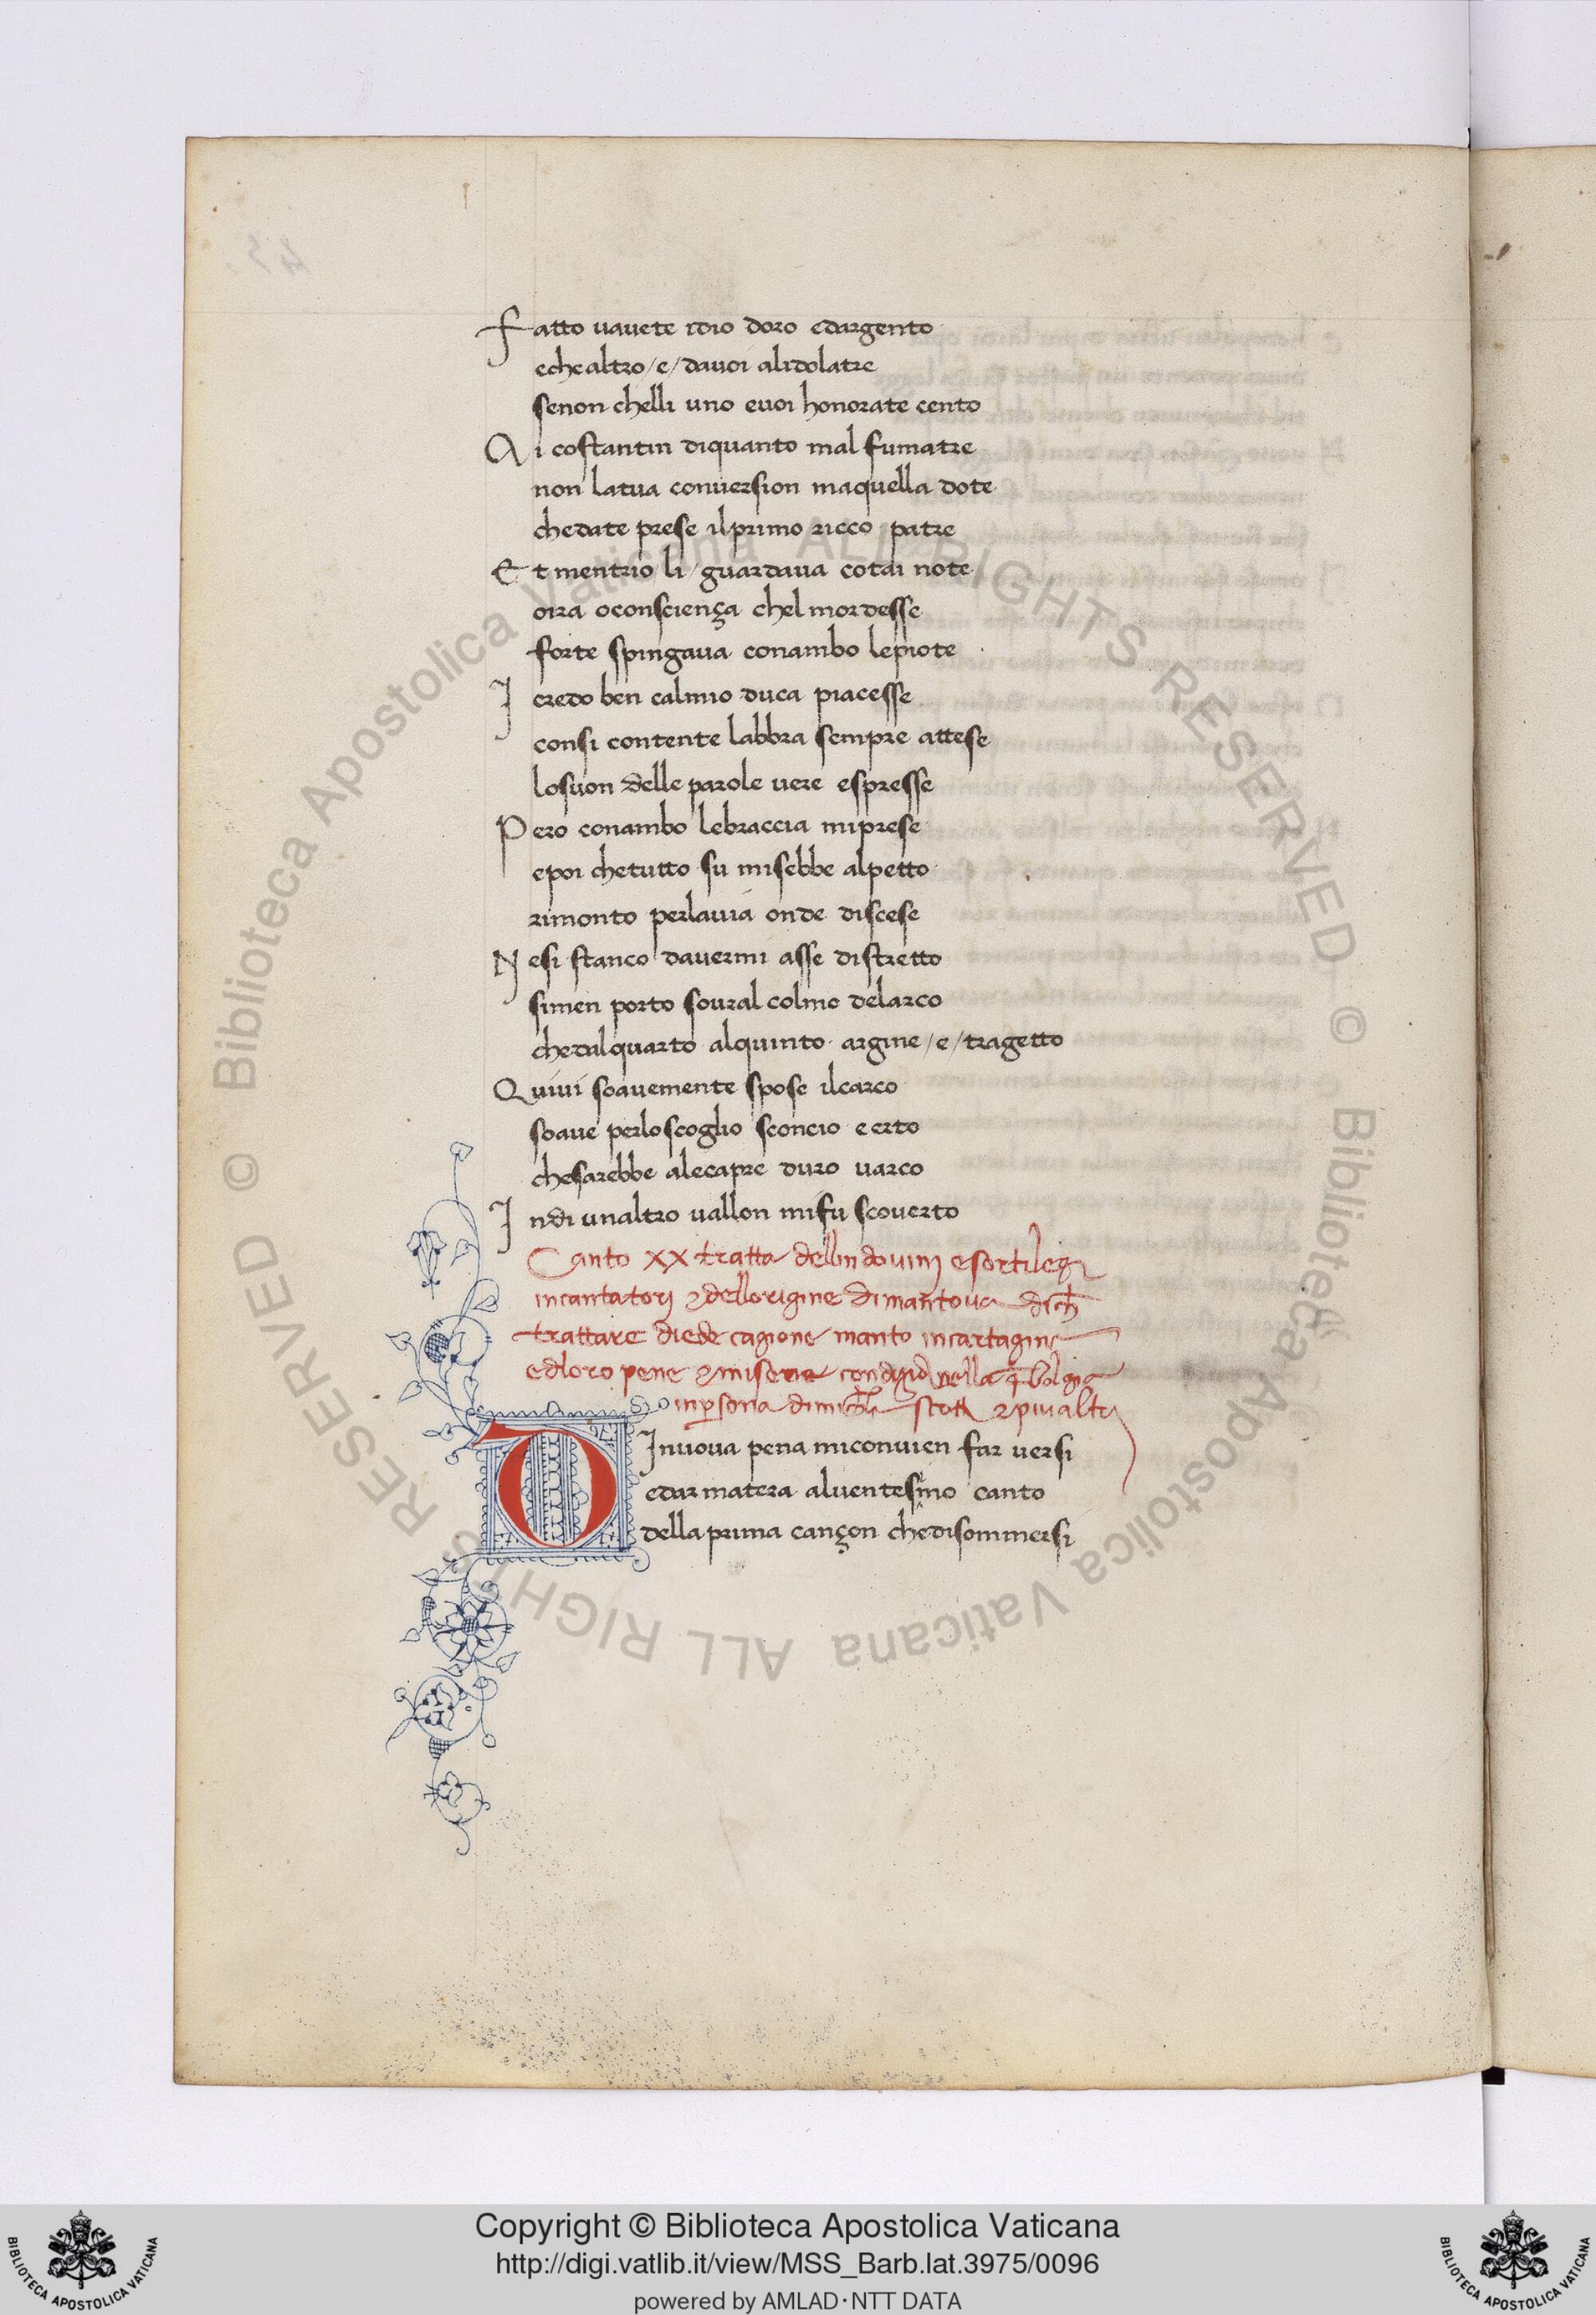 43
Fatto vavete idio doro edargento
echealtro/e/davoi alidolatre
senon chelli uno evoi honorate cento
Ai costantin diquanto mal fumatre
non latua conversion maquella dote
chedate prese ilprimo ricco patre
Et mentrio/li/guardava cotai note
oira oconsciença chel mordesse
forte spingava conambo lepiote
I credo ben calmio duca piacesse
consi contente labbra sempre attese
losuon delle parole vere espresse
Pero conambo lebraccia miprese
epoi chetutto su misebbe alpetto
rimonto perlavia onde discese
Nesi stanco davermi asse distretto
simen porto soural colmo delarco
chedalquarto alquinto argine/e/tragetto
Quivi soavemente spose ilcarco
soave perloscoglio sconcio eerto
chesarebbe alecapre duro varco
Indi unaltro vallon mifu scoverto
Canto XX tratta dellindovini esortilegi
incantatori & dellorigine dimantova dich
trattare diede cagione manto incartagine
edloro pene & miseria nella bolgia
inpersona di scott & piu altri
DInuova pena miconvien far versi
edar matera alventesimo canto
della prima cançon chedisommersi
© Biblioteca Apostolica Vaticana ALL RIGHTS RESERVED © Biblioteca Apostolica Vaticana ALL RIGHTS RESERVED
BIBLIOTECA APOSTOLICA VATICANA
Copyright © Biblioteca Apostolica Vaticana
http://digi.vatlib.it/view/MSS_Barb.lat.3975/0096
powered by AMLAD·NTT DATA
BIBLIOTECA APOSTOLICA VATICANA